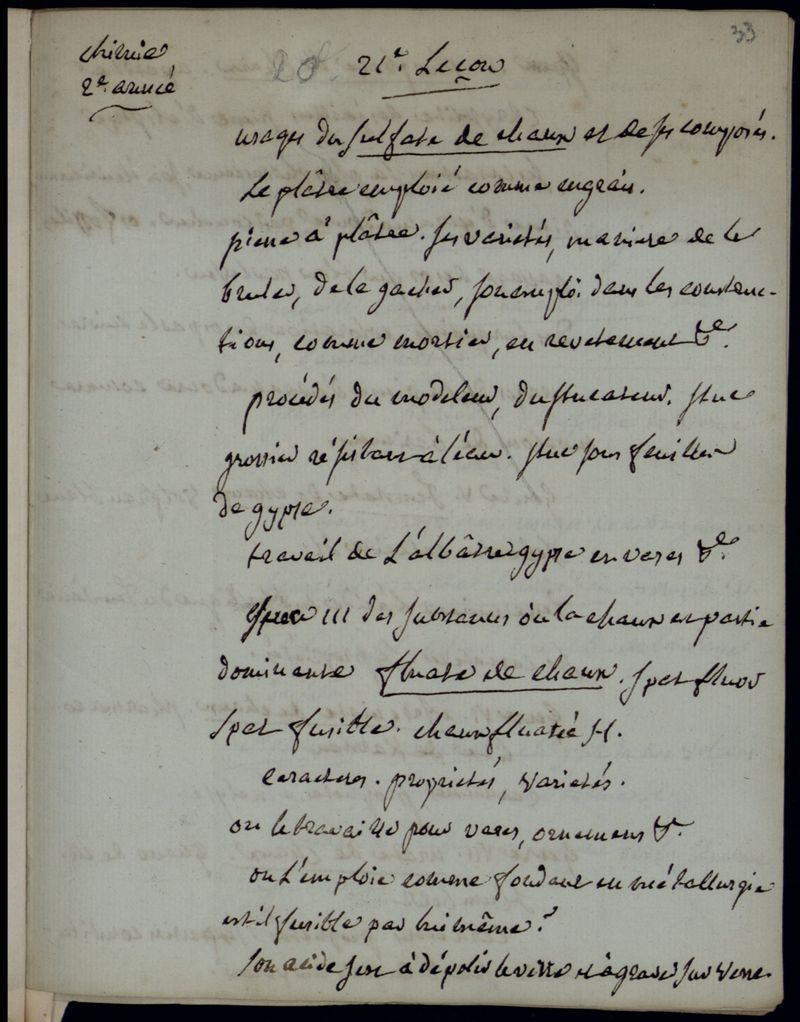 33
chimie
2e. année
20e. 21e. Leçon
usages du sulfate de chaux et de ses composés.
Le plâtre emploié comme engrais.
pierre à plâtre. ses varietés, maniere de le
bruler, de le gacher, son emploi dans les construc-
tions, comme mortier, en revetement &c.
procédés du modeleur, du stucateur. stuc
grossier résistant à l'eau. stuc sous feuilles
de gypse.
travail de L'albâtre gypse en vases &c.
Espece III des substances où la chaux est partie
dominante fluate de chaux. spat fluor
spat fusible. chaux fluatée H.
caracteres. propriétés, varietés.
on le travaille pour vases, ornemens &c.
on L'emploie comme fondant en métallurgie
est il fusible par lui même?
son acide sert à dépolir le verre et à graver sur verre.